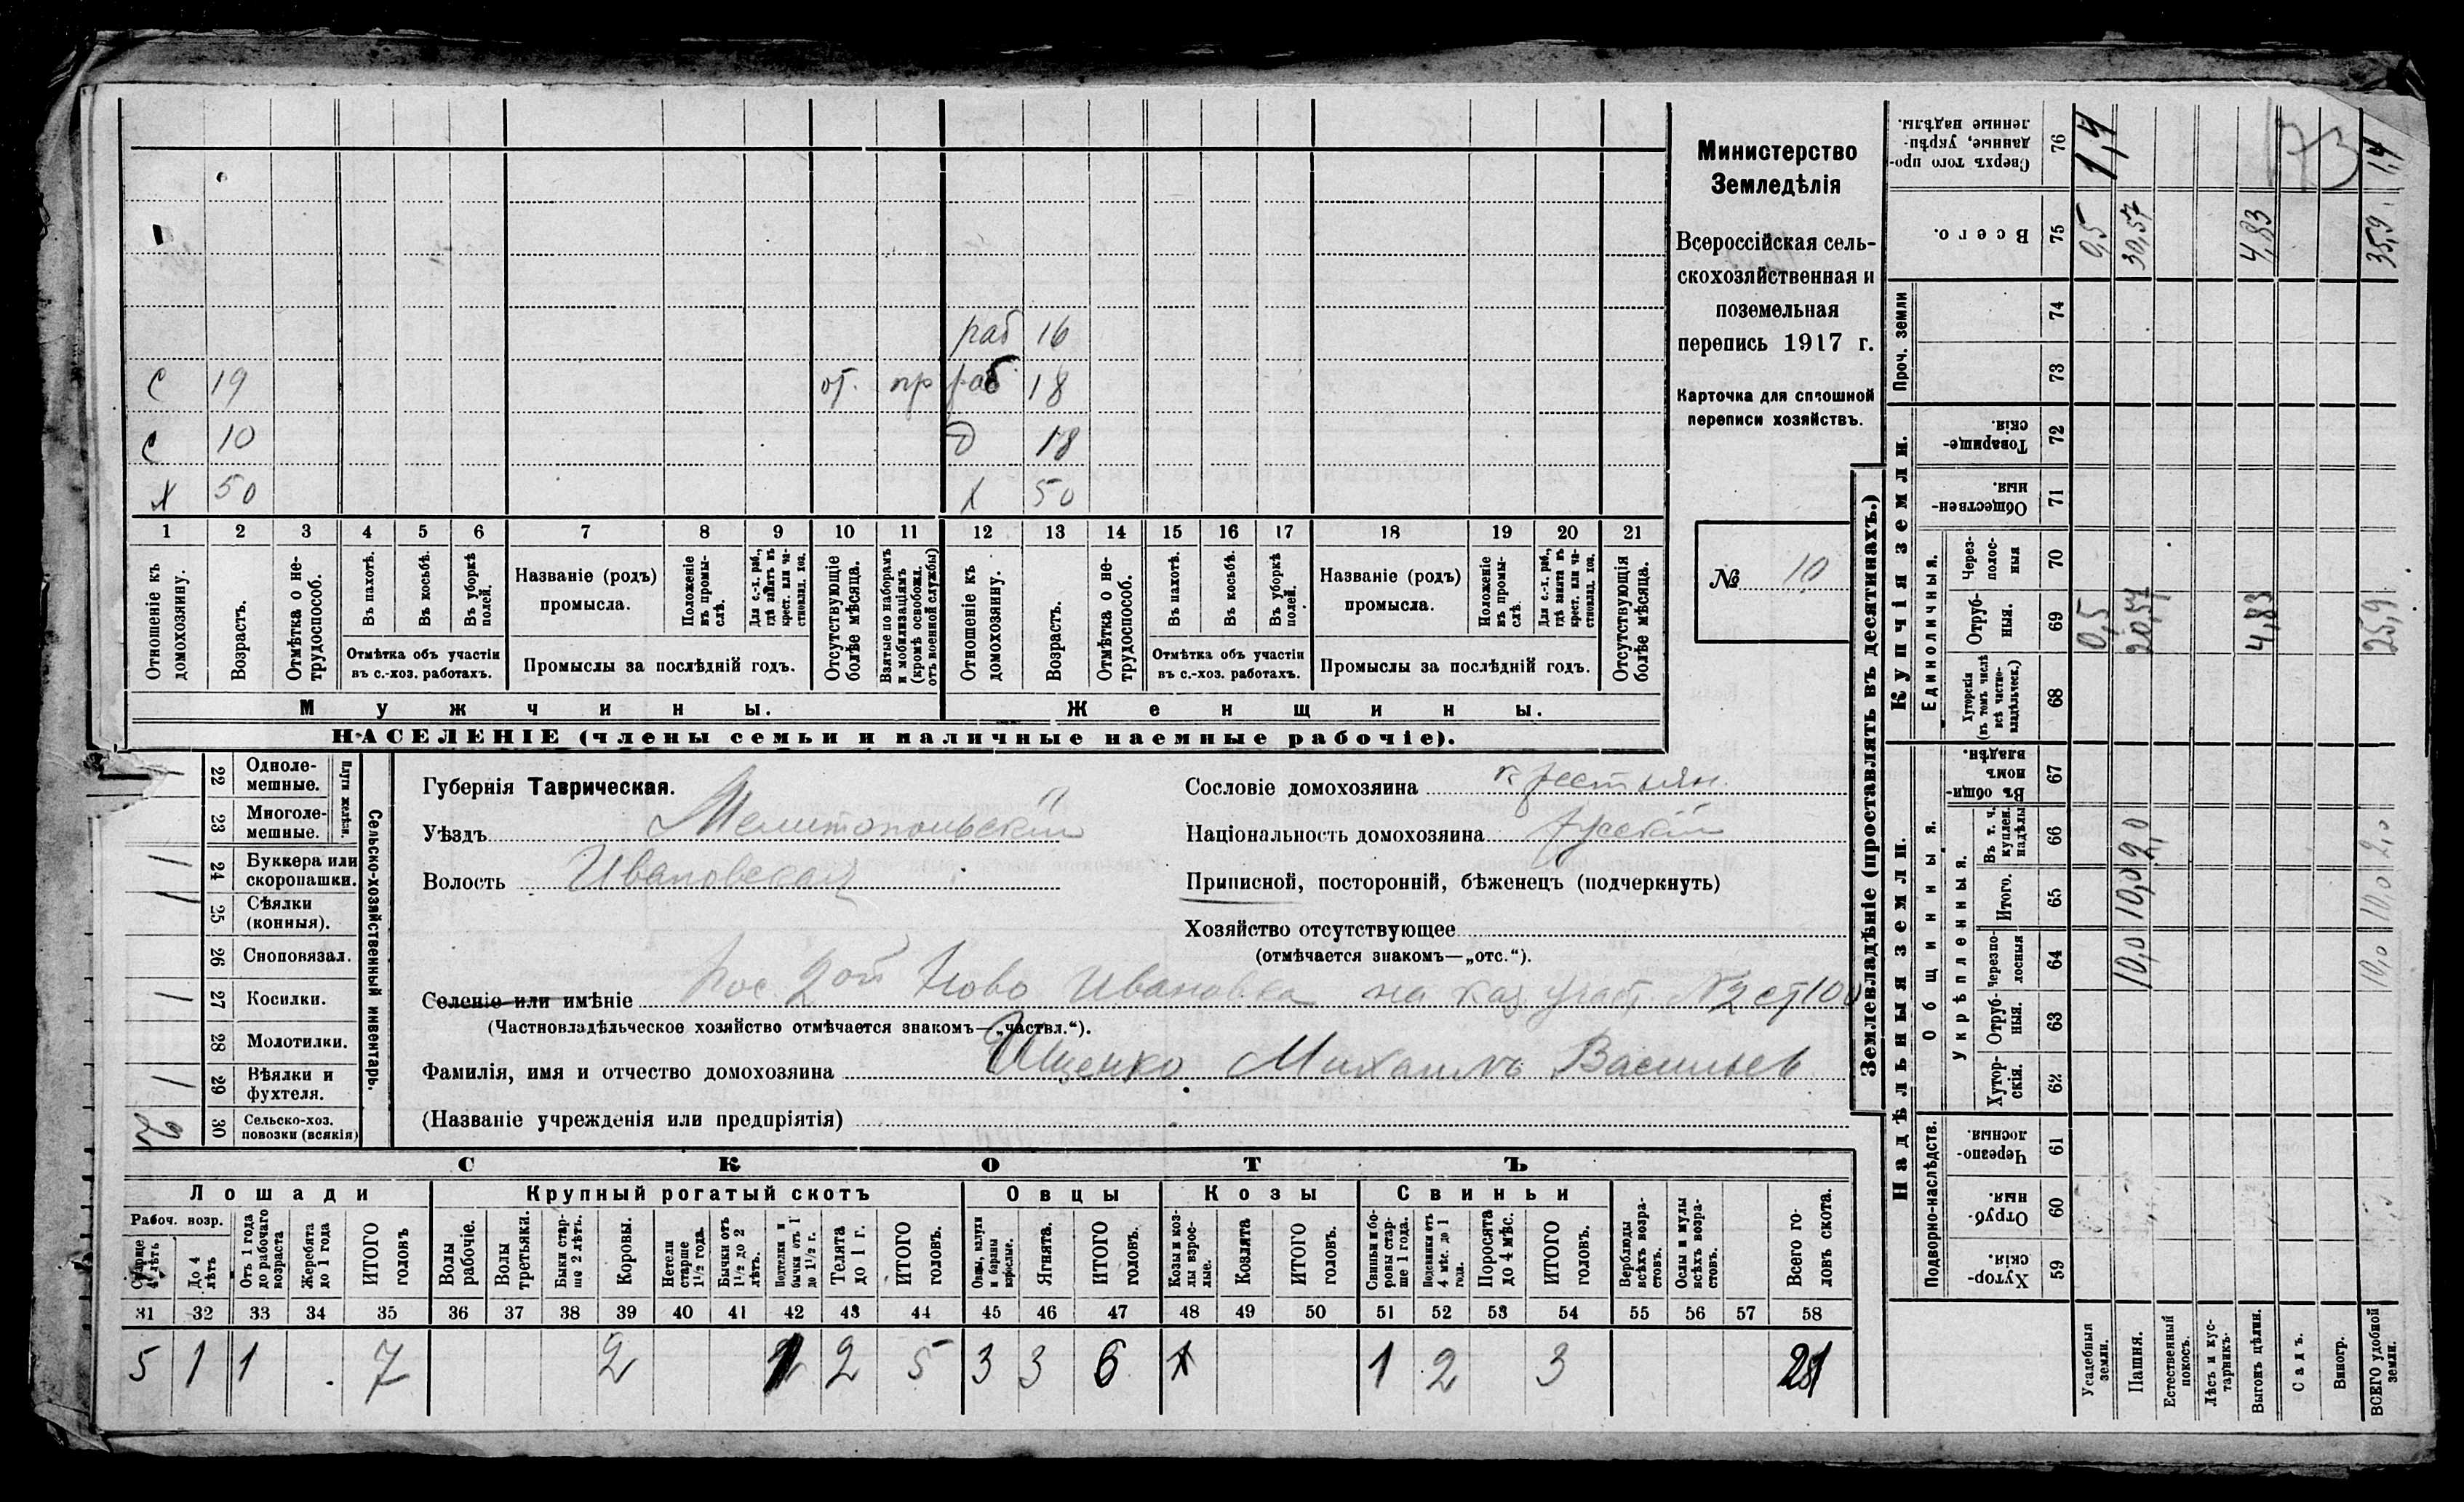 Министерство
Земледѣлія
Всероссійская сель-
скохозяйственная и
поземельная
перепись 1917 г.
Карточка для сплошной
переписи хозяйствъ.
№ 10
раб 16
с 19 от. пр раб 18
с 10 д 18
х 50 х 50
1 2 3 4 5 6 7 8 9 10 11 12 13 14 15 16 17 18 19 20 21
Отношеніе къ домохозяину.
Возрастъ.
Отмѣтка о не-
трудоспособ.
Въ пахотѣ.
Въ косьбѣ.
Въ уборкѣ
полей.
Отмѣтка объ участіи
въ с.-хоз. работахъ.
Названіе (родъ)
промысла.
Положеніе
въ промы-
слѣ.
Для с.-х. раб.,
гдѣ занятъ въ
крест. или ча-
стновлад. хоз.
Промыслы за послѣдній годъ.
Отсутствующіе
болѣе мѣсяца.
Взятые по наборамъ
и мобилизаціямъ
(кромѣ освобожд.
отъ военной службы)
Отношеніе къ
домохозяину.
Возрастъ.
Отмѣтка о не-
трудоспособ.
Въ пахотѣ.
Въ косьбѣ.
Въ уборкѣ
полей.
Отмѣтка объ участіи
въ с.-хоз. работахъ.
Названіе (родъ)
промысла.
Положеніе
въ промы-
слѣ.
Для с.-х. раб.,
гдѣ занята въ
крест. или ча-
стновлад. хоз.
Промыслы за послѣдній годъ.
Отсутствующія
болѣе мѣсяца.
Мужчины.
Женщины.
НАСЕЛЕНІЕ (члены семьи и наличные наемные рабочіе).
Сельско-хозяйственный инвентарь.
Плуги желѣзн.
22 Одноле-
мешные.
23 Многоле-
мешные.
24 Буккера или
скоропашки.
25 Сѣялки
(конныя).
26 Сноповязал.
27 Косилки.
28 Молотилки.
29 Вѣялки и
фухтеля.
30 Сельско-хоз.
повозки (всякія)
Губернія Таврическая.
Уѣздъ Мелитопольскій
Волость Ивановская
Сословіе домохозяина крестьян.
Національность домохозяина русскій
Приписной, посторонній, бѣженецъ (подчеркнуть)
Хозяйство отсутствующее
(отмѣчается знакомъ—„отс.“).
Селеніе или имѣніе пос 2ой Ново Ивановка на каз участ №2 ст 100
(Частновладѣльческое хозяйство отмѣчается знакомъ—„частвл.“).
Фамилія, имя и отчество домохозяина Ищенко Михаилъ Васильев
(Названіе учрежденія или предпріятія)
СКОТЪ
Лошади
Крупный рогатый скотъ
Овцы
Козы
Свиньи
Рабоч. возр.
Старше
4 лѣтъ
До 4
лѣтъ
Отъ 1 года
до рабочаго
возраста
Жеребята
до 1 года
ИТОГО
головъ
Волы
рабочіе.
Волы
третьяки.
Быки стар-
ше 2 лѣтъ.
Коровы.
Нетели
старше
1½ года.
Бычки отъ
1½ до 2
лѣтъ.
Подтелки и
бычки отъ 1
до 1½ г.
Телята
до 1 г.
ИТОГО
головъ.
Овцы, валухи
и бараны
взрослые.
Ягнята.
ИТОГО
головъ.
Козы и коз-
лы взрос-
лые.
Козлята
ИТОГО
головъ.
Свиньи и бо-
ровы стар-
ше 1 года.
Подсвинки отъ
4 мѣс. до 1
года.
Поросята
до 4 мѣс.
ИТОГО
головъ.
Верблюды
всѣхъ возра-
стовъ.
Ослы и мулы
всѣхъ возра-
стовъ.
Всего го-
ловъ скота.
31 32 33 34 35 36 37 38 39 40 41 42 43 44 45 46 47 48 49 50 51 52 53 54 55 56 57 58
5 1 1 7 2 1 2 5 3 3 6 1 2 3 21
Землевладѣніе (проставлять въ десятинахъ.)
Купчія земли.
Надѣльныя земли.
Проч. земли
Единоличныя.
Общинныя.
Укрѣпленныя.
Подворно-наслѣдств.
Сверхъ того про-
данные, укрѣп-
ленные надѣлы.
76
Всего.
75
74
73
Товарище-
скія.
72
Обществен-
ныя.
71
Через-
полос-
ныя
70
Отруб-
ныя.
69
Хуторскія
(въ томъ числѣ
всѣ частно-
владѣльческ.)
68
Въ общин-
номъ
владѣн.
67
Въ т. ч.
куплен.
надѣлы
66
Итого.
65
Черезпо-
лосныя
64
Отруб-
ныя.
63
Хутор-
скія.
62
Черезпо-
лосныя.
61
Отруб-
ныя.
60
Хутор-
скія.
59
Усадебныя
земли. 0,5 0,5 1,4
Пашня. 10,0 10,0 2,0 20,57 30,57
Естественный
покосъ.
Лѣсъ и кус-
тарникъ.
Выгонъ цѣлин. 4,83 4,83
Садъ.
Виногр.
ВСЕГО удобной
земли. 10,0 10,0 2,0 25,9 35,9 1,4
173